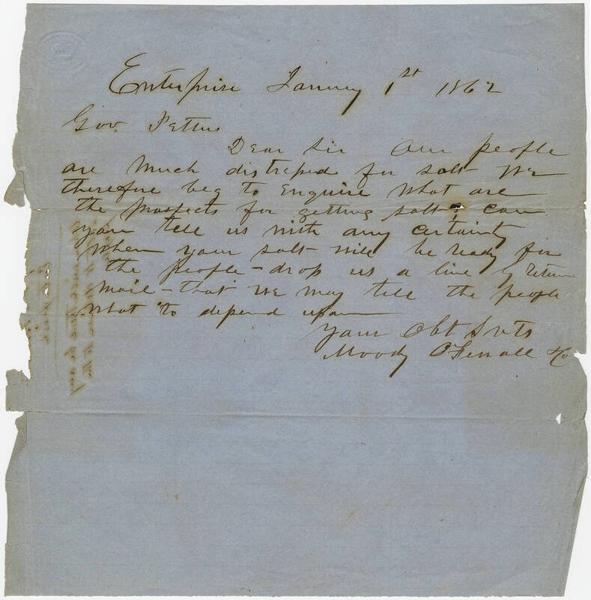 Enterprise January 1st 1862
Gov. Pettus
Dear Sir Our people
are much distressed for salt We
therefore beg to enquire what are
the prospects for getting salt, can
you tell us with any certainty
when your salt will be ready for
the people - drop us a line by return
mail - that we may tell the people
what to depend upon
Your Obt Svts
Moody O'Ferrall & Co